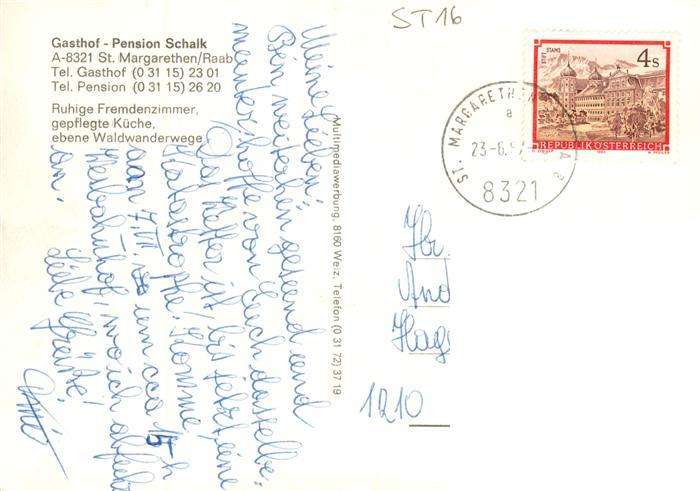 ST16
Gasthof - Pension Schalk
A-8321 St. Margarethen/Raab
Tel. Gasthof (0 31 15) 23 01
Tel. Pension (0 31 15) 26 20
Ruhige Fremdenzimmer,
gepflegte Küche,
ebene Waldwanderwege
Meine Lieben!
Bin weiterhin gesund und
munter, hoffe von Euch dasselbe.
Das Wetter ist bis jetzt eine
Katastrophe! Komme
am 7.VII. um cca 15 h
Westbahnhof, wo ich abfuhr
an.
Liebe Grüße!
Multimediawerbung, 8160 Weiz, Telefon (0 31 72) 37 19
STIFT STAMS
4 S
REPUBLIK ÖSTERREICH
ST. MARGARETHEN
a
23.-6.
8321
And
Hag
1210